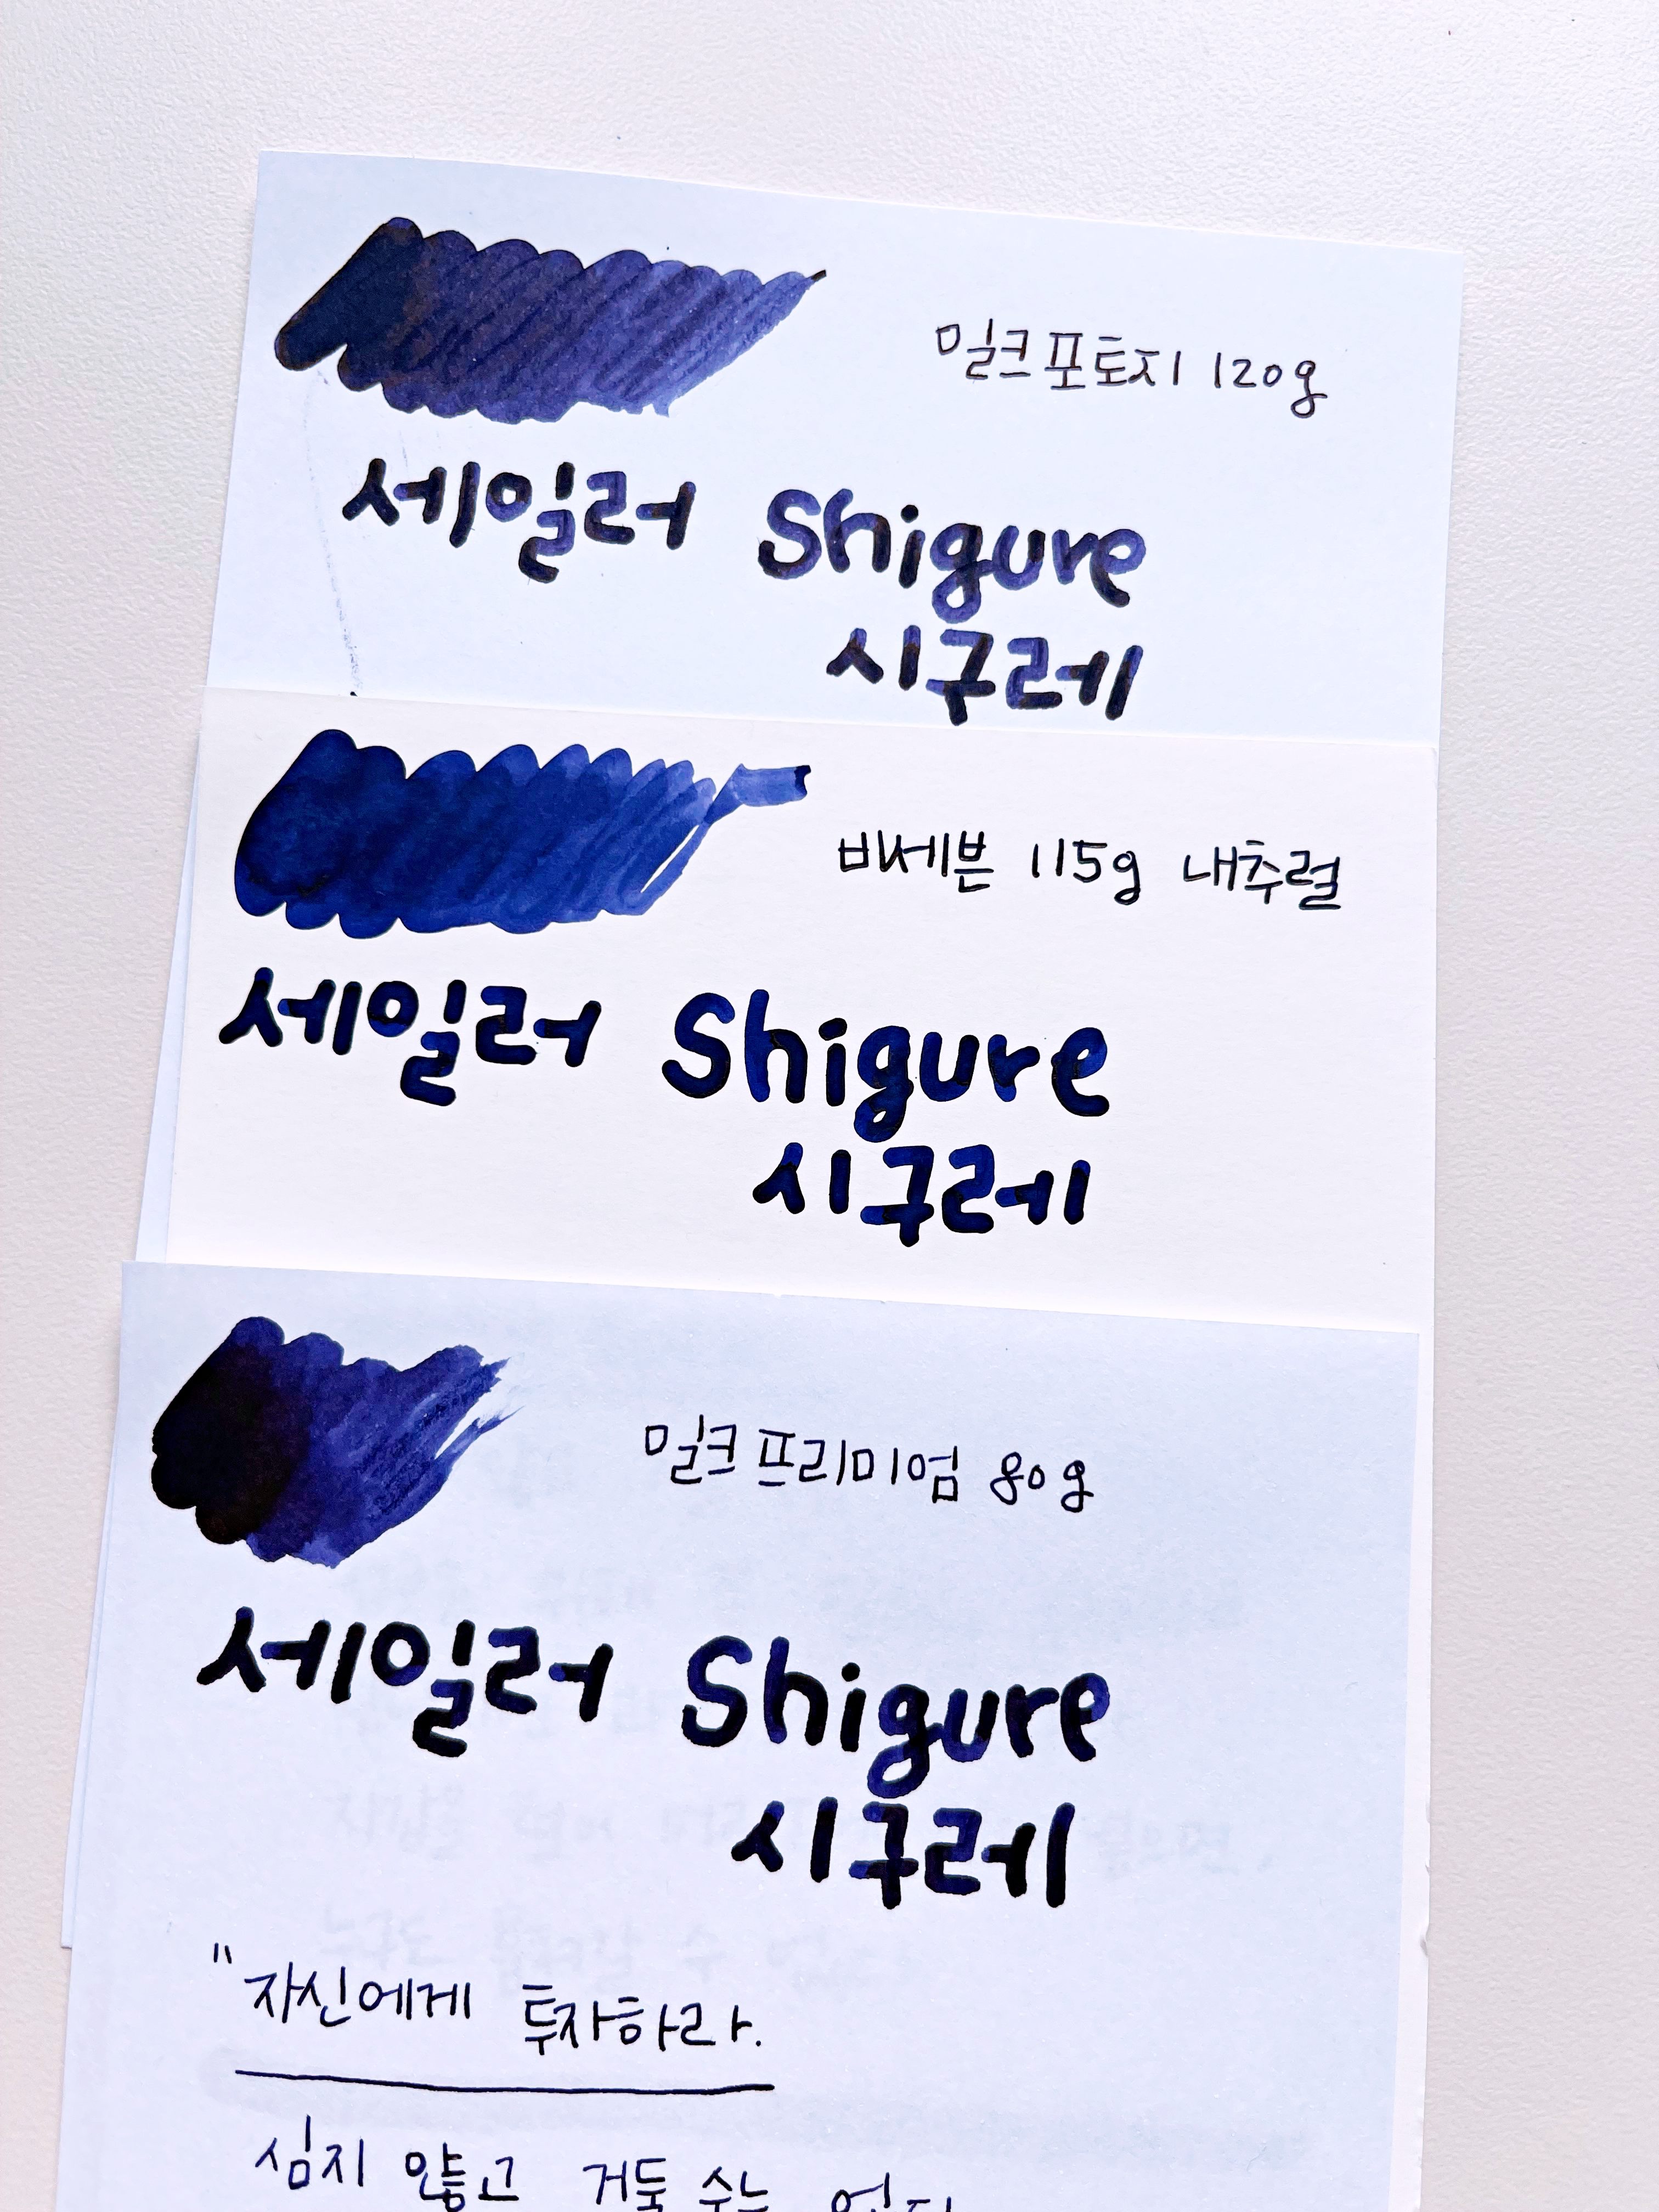 밀크포토지 120g
세일러 Shigure
시구레
바세븐 115g 내추럴
세일러 Shigure
시구레
밀크 프리미엄 80g
세일러 Shigure
시구레
"자신에게 투자하라.
심지 않고 거둘 수는